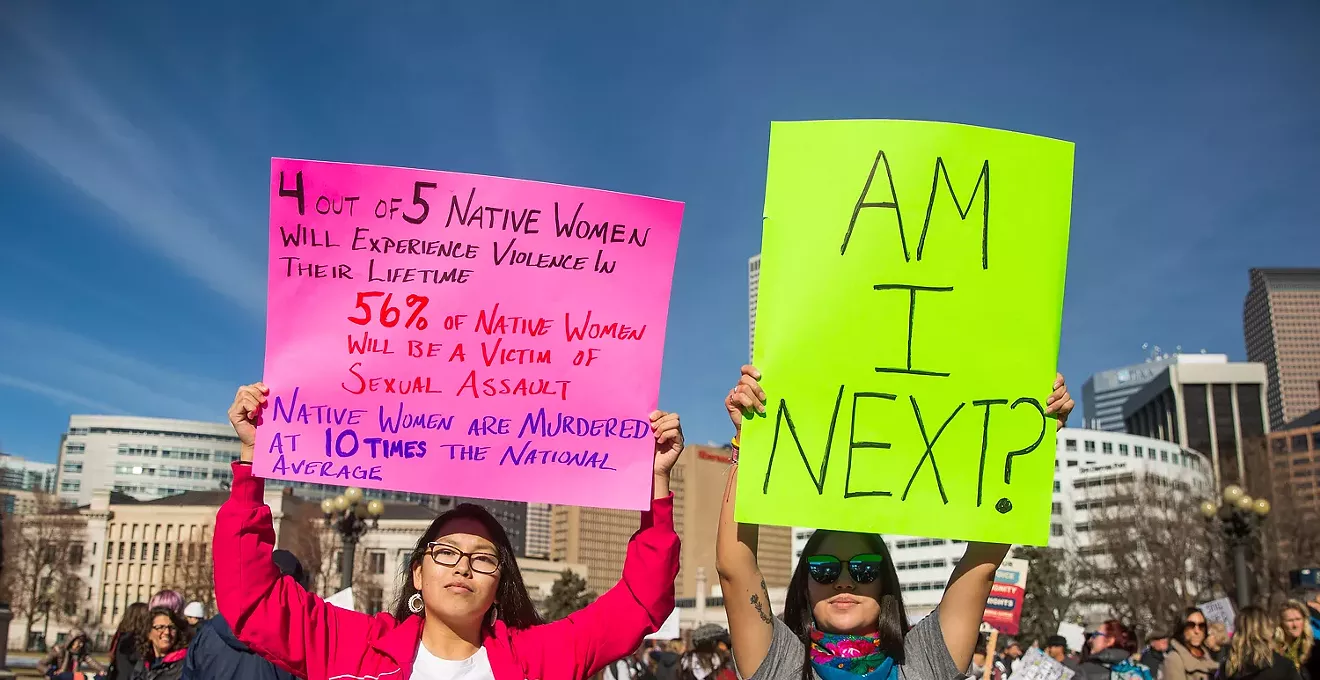 4 OUT OF 5 NATIVE WOMEN
WILL EXPERIENCE VIOLENCE IN
THEIR LIFETIME
56% OF NATIVE WOMEN
WILL BE A VICTIM OF
SEXUAL ASSAULT
NATIVE WOMEN ARE MURDERED
AT 10 TIMES THE NATIONAL
AVERAGE
AM
I
NEXT?